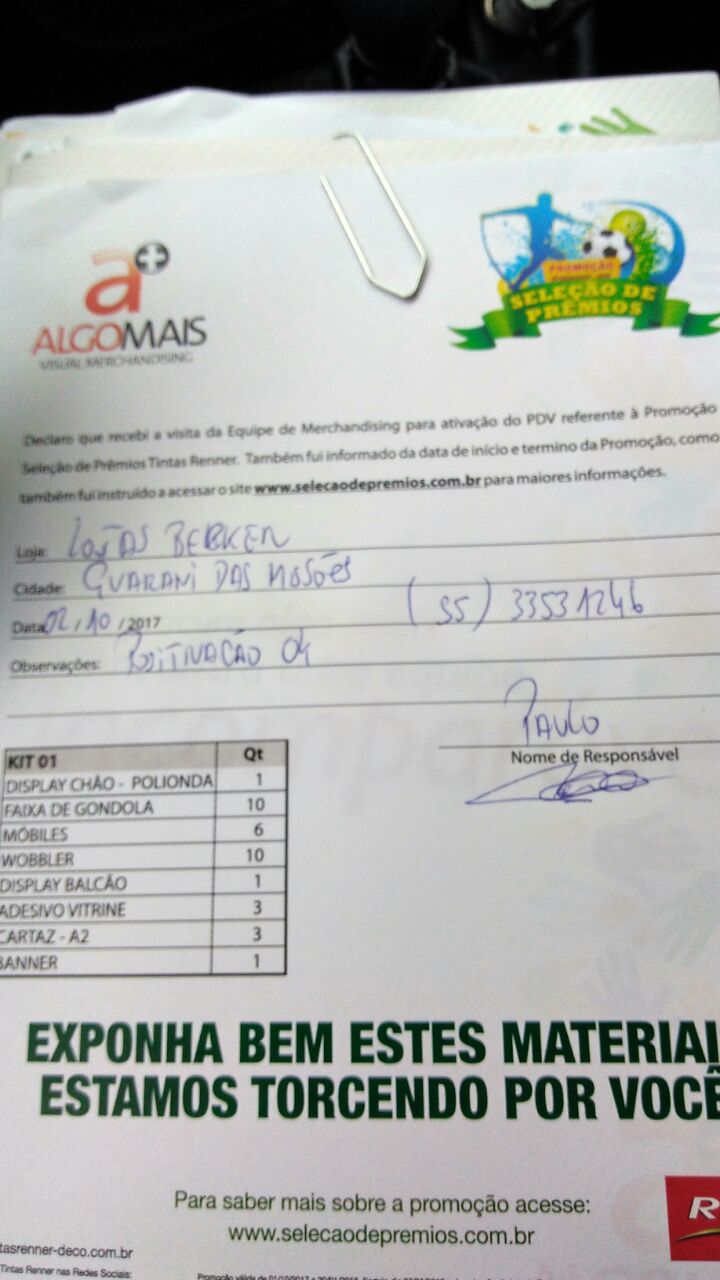 a+
ALGOMAIS
VISUAL MERCHANDISING
PROMOÇÃO
SELEÇÃO DE
PRÊMIOS
Declaro que recebi a visita da Equipe de Merchandising para ativação do PDV referente à Promoção
Seleção de Prêmios Tintas Renner. Também fui informado da data de início e termino da Promoção, como
também fui instruído a acessar o site www.selecaodepremios.com.br para maiores informações.
Loja: LOJAS BEBKEN
Cidade: GUARANI DAS MOSÕES
Data: 02 / 10 / 2017 (55) 33531246
Observações: POSITIVAÇÃO 04
PAULO
Nome de Responsável
KIT 01 Qt
DISPLAY CHÃO - POLIONDA 1
FAIXA DE GONDOLA 10
MÓBILES 6
WOBBLER 10
DISPLAY BALCÃO 1
ADESIVO VITRINE 3
CARTAZ - A2 3
BANNER 1
EXPONHA BEM ESTES MATERIAI
ESTAMOS TORCENDO POR VOCÊ
Para saber mais sobre a promoção acesse:
www.selecaodepremios.com.br
R
tasrenner-deco.com.br
Tintas Renner nas Redes Sociais: